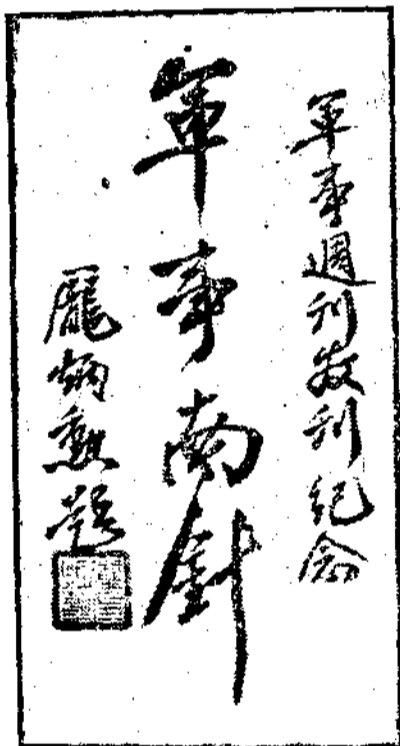 軍事週刊发刊紀念
軍事南針
龐炳勳題